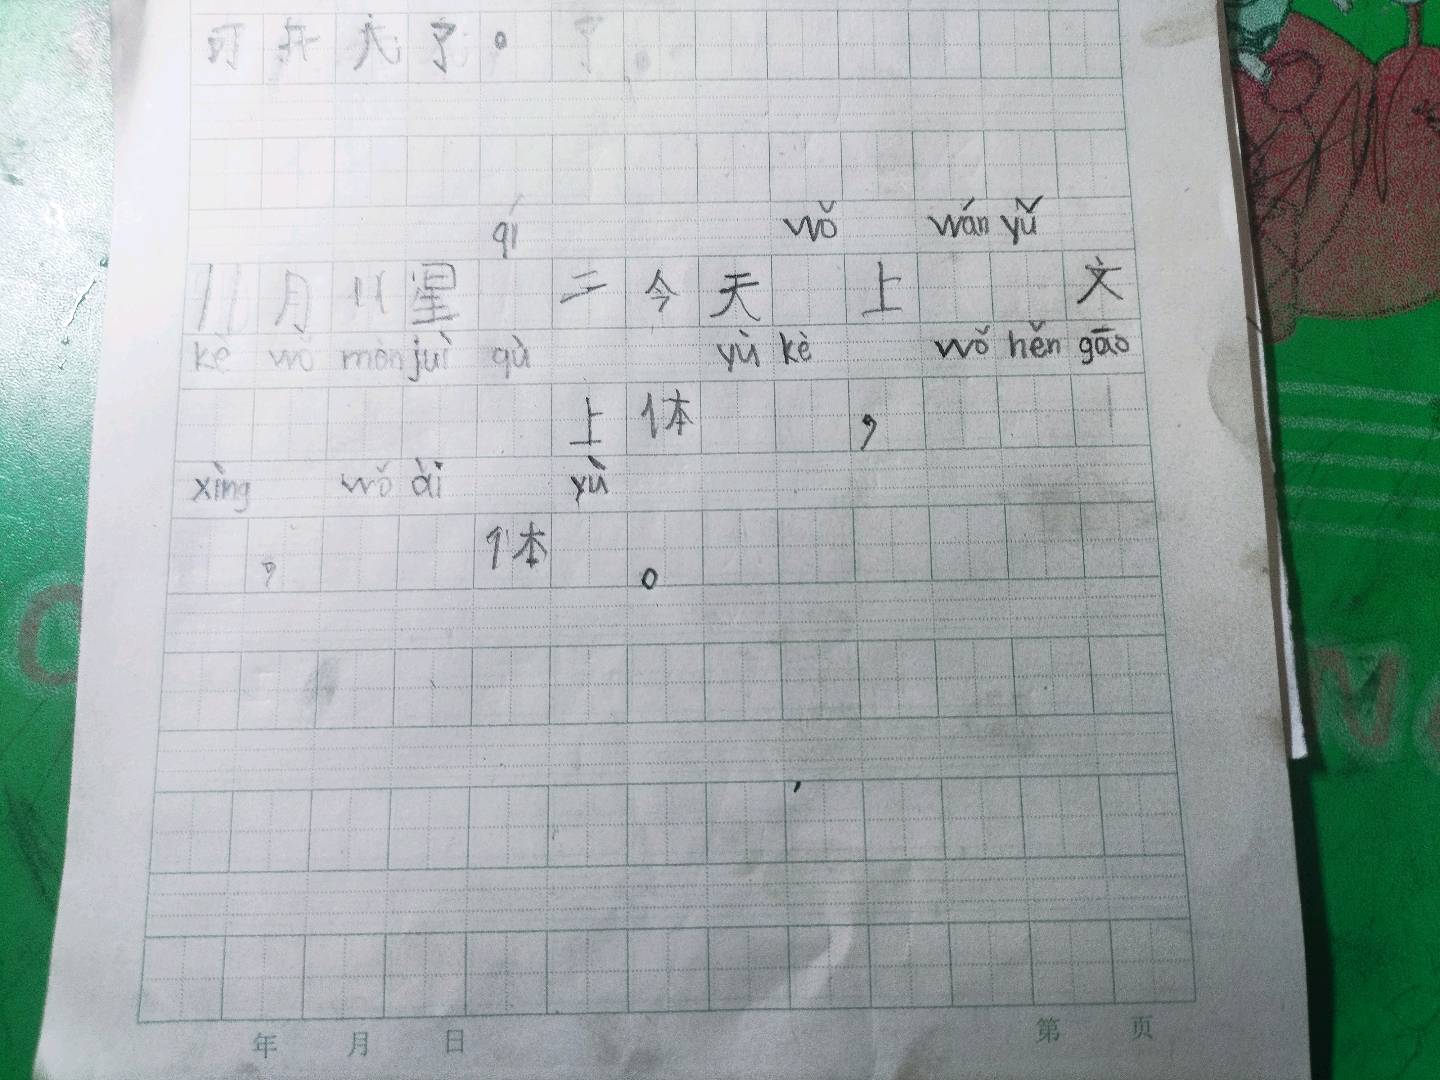 可开天了。 了。
qí wǒ wán yǔ
11月11星 二今天 上 文
kè wǒ mèn juì qù yù kè wǒ hěn gāo
上体 ，
xìng wǒ ài yù
， 体 。
年 月 日 第 页